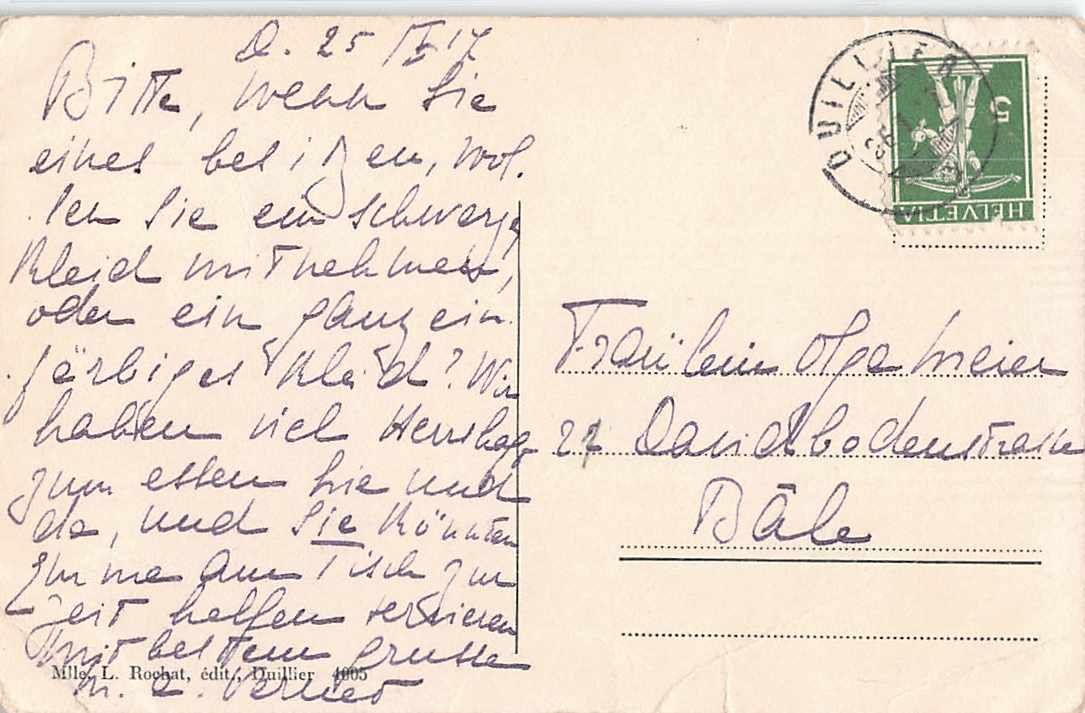 D. 25/I 17
Bitte, wenn Sie
eines besitzen, wol-
len Sie ein schwarzes
Kleid mitnehmen,
oder ein ganz ein-
färbiges Kleid? Wir
haben viel
zum essen hie und
da, und Sie könnten
am Tisch zur
Zeit helfen servieren
Mit bestem Grusse
Mlle. L. Rochat, édit., Duillier 4005
DUILLIER
HELVETIA
5
Fräulein Olga Meier
27 Davidsbodenstrasse
Bâle